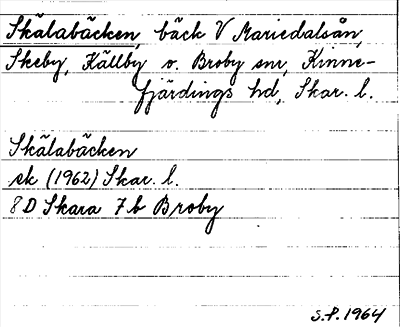 Skälabäcken, bäck V Mariedalsån,
Skeby, Källby o. Broby snr, Kinne-
fjärdings hd, Skar. l.
Skälabäcken
sk (1962) Skar. l.
8D Skara 7b Broby
S.F. 1964